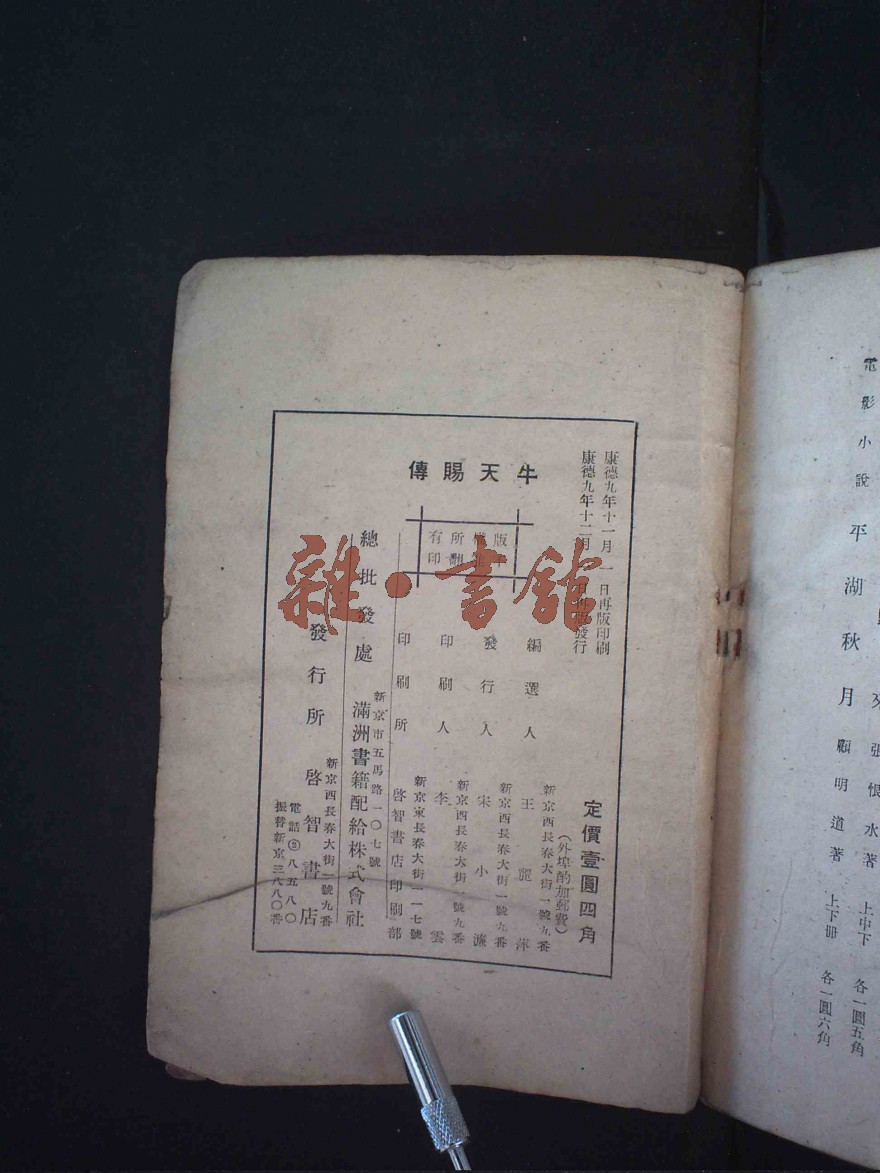 電影小說 平湖秋月 顧明道著 上下册 各一圓六角
張恨水著 上中下 各一圓五角
康德九年十一月一日再版印刷
康德九年十二月 日再版發行
定價壹圓四角
(外埠酌加郵費)
牛天賜傳
版權所有
翻印
新京西長春大街一號九番
編選人 王 萍
新京西長春大街一號九番
發行人 宋小濂
新京西長春大街一號九番
印刷人 李 雲
新京東長春大街一一七號
印刷所 啓智書店印刷部
新京市五馬路一〇七號
總批發處 滿洲書籍配給株式會社
新京西長春大街一號九番
發行所 啓智書店
電話③八五八〇
振替新京三八八〇番
雜·書館